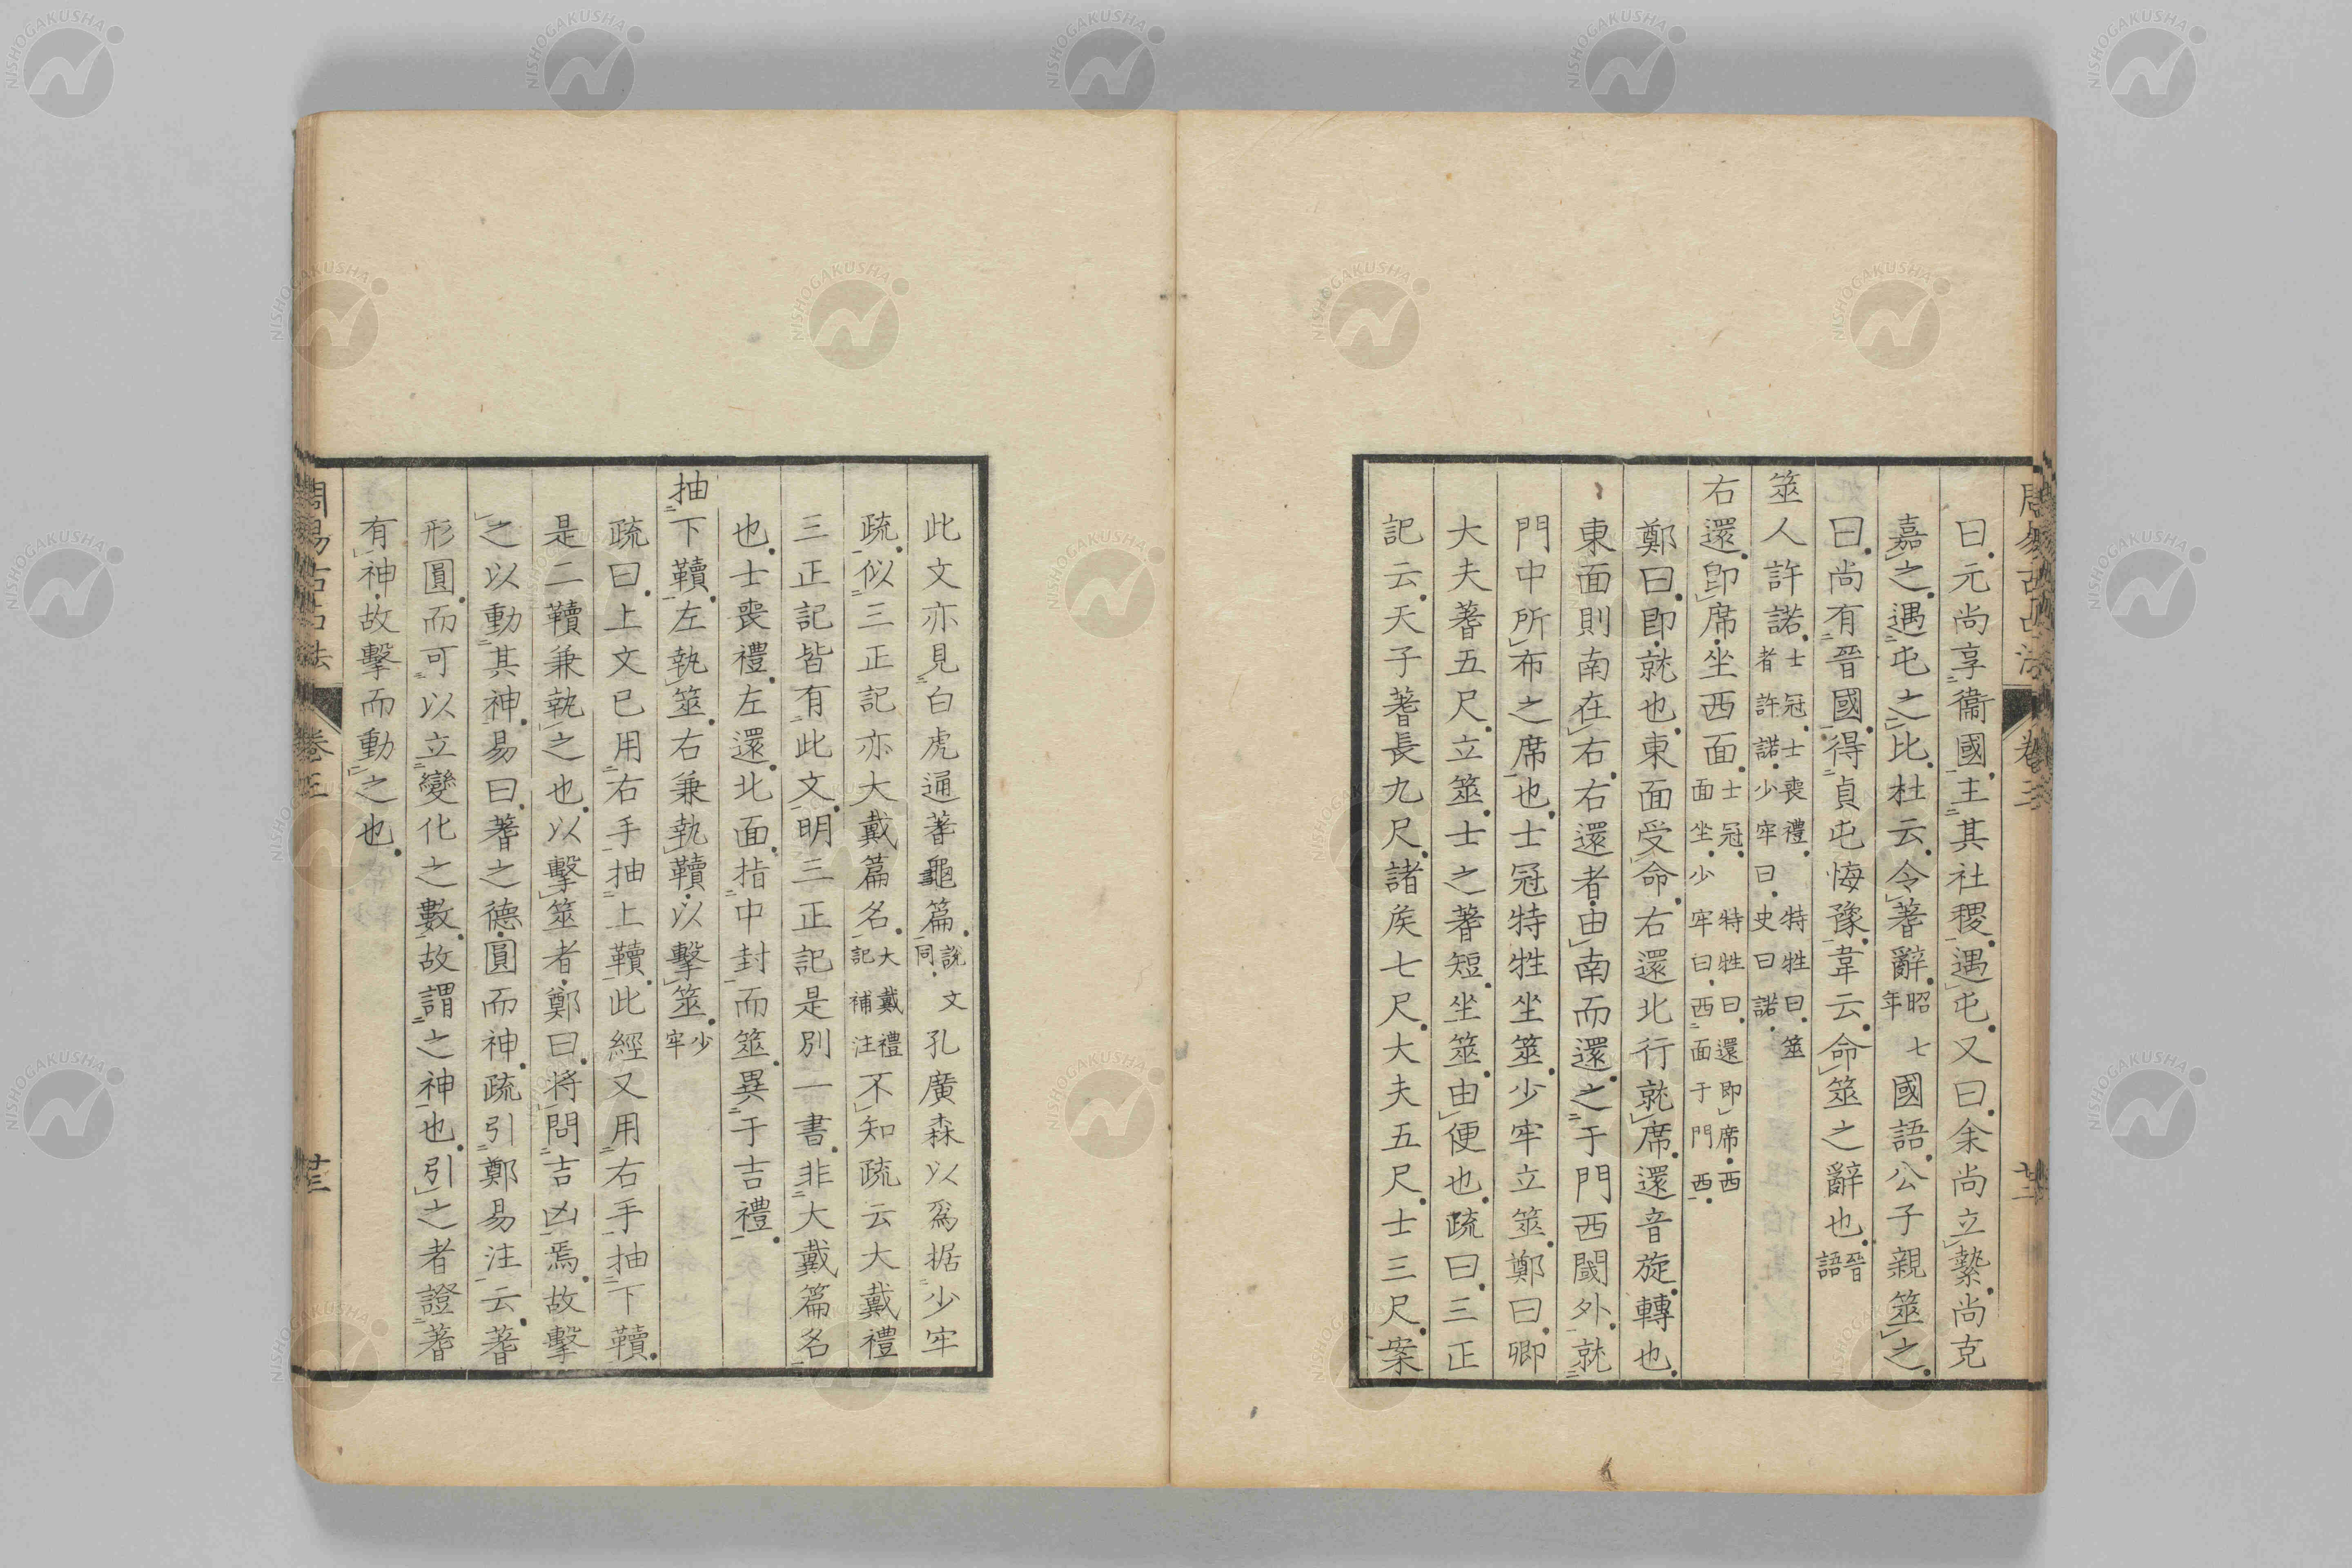 曰元尚享衞國主其社稷遇屯又曰余尚立縶尚克
嘉之遇屯之比杜云令蓍辭昭七年國語公子親筮之
曰尚有晉國得貞屯悔豫韋云命筮之辭也晉語
筮人許諾士冠士喪禮特牲曰筮者許諾少牢曰史曰諾
右還卽席坐西面士冠特牲曰還卽席西面坐少牢曰西面于門西
鄭曰卽就也東面受命右還北行就席還音旋轉也
東面則南在右右還者由南而還之于門西闑外就
門中所布之席也士冠特牲坐筮少牢立筮鄭曰卿
大夫蓍五尺立筮士之蓍短坐筮由便也疏曰三正
記云天子蓍長九尺諸矦七尺大夫五尺士三尺案
周易古占法 卷三 廿二
此文亦見白虎通蓍龜篇說文同孔廣森以爲据少牢
疏似三正記亦大戴篇名大戴禮記補注不知疏云大戴禮
三正記皆有此文明三正記是別一書非大戴篇名
也士喪禮左還北面指中封而筮異于吉禮
抽下韇左執筮右兼執韇以擊筮少牢
疏曰上文已用右手抽上韇此經又用右手抽下韇
是二韇兼執之也以擊筮者鄭曰將問吉凶焉故擊
之以動其神易曰蓍之德圓而神疏引鄭易注云蓍
形圓而可以立變化之數故謂之神也引之者證蓍
有神故擊而動之也
周易古占法 卷三 廿三
NISHOGAKUSHA